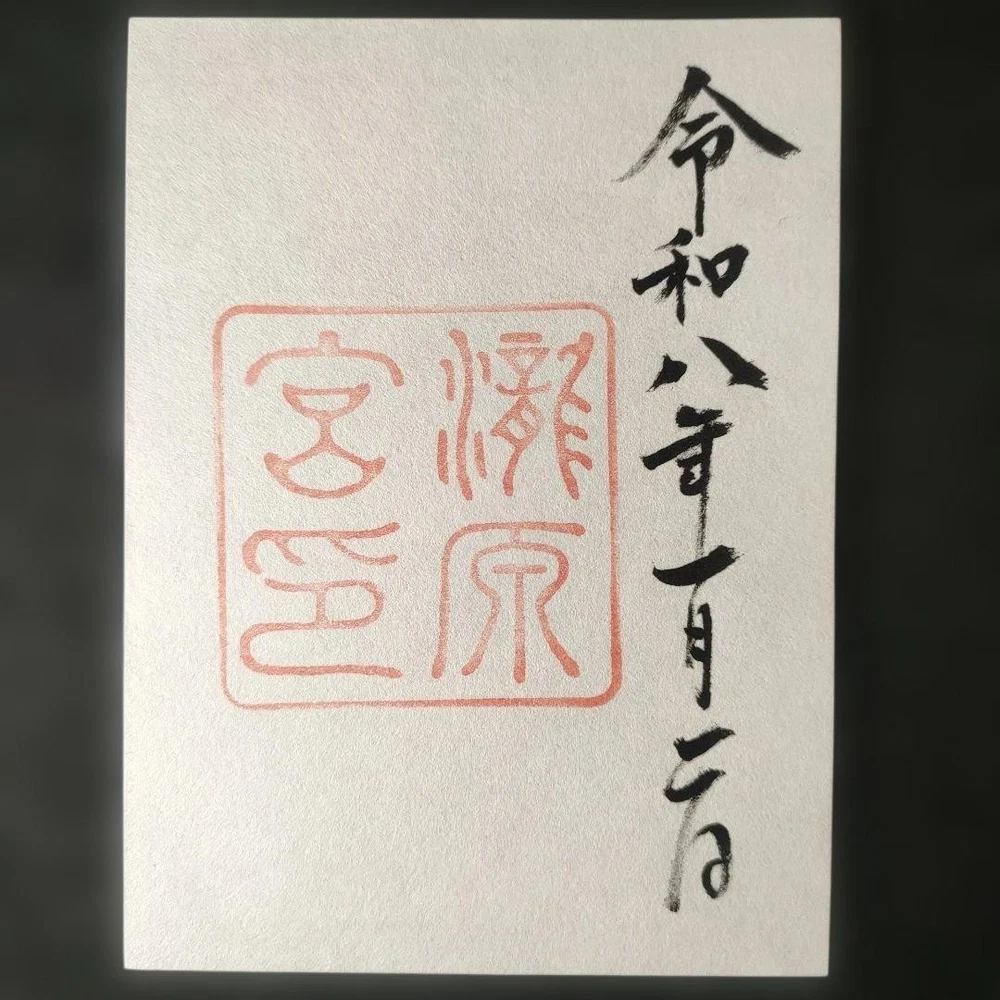 令和八年一月二日
瀧原
宮印